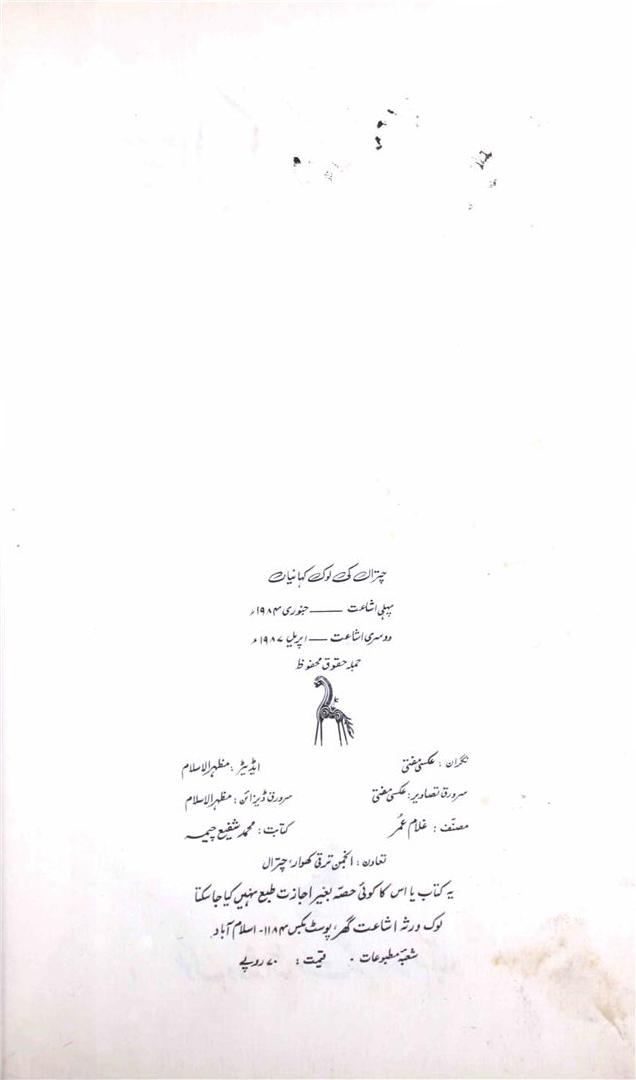 چترال کی لوک کہانیاں
پہلی اشاعت ــــــ جنوری ۱۹۸۴ء
دوسری اشاعت ــــ اپریل ۱۹۸۷ء
جملہ حقوق محفوظ
نگران : عکسی مفتی ایڈیٹر : مظہر الاسلام
سرورق تصاویر : عکسی مفتی سرورق ڈیزائن : مظہر الاسلام
مصنّف : غلام عمر کتابت : محمد شفیع چیمہ
تعاون : انجمن ترقی کھوار، چترال
یہ کتاب یا اس کا کوئی حصّہ بغیر اجازت طبع نہیں کیا جا سکتا
لوک ورثہ اشاعت گھر، پوسٹ بکس ۱۱۸۴- اسلام آباد
شعبۂ مطبوعات - قیمت : ۷۰ روپے